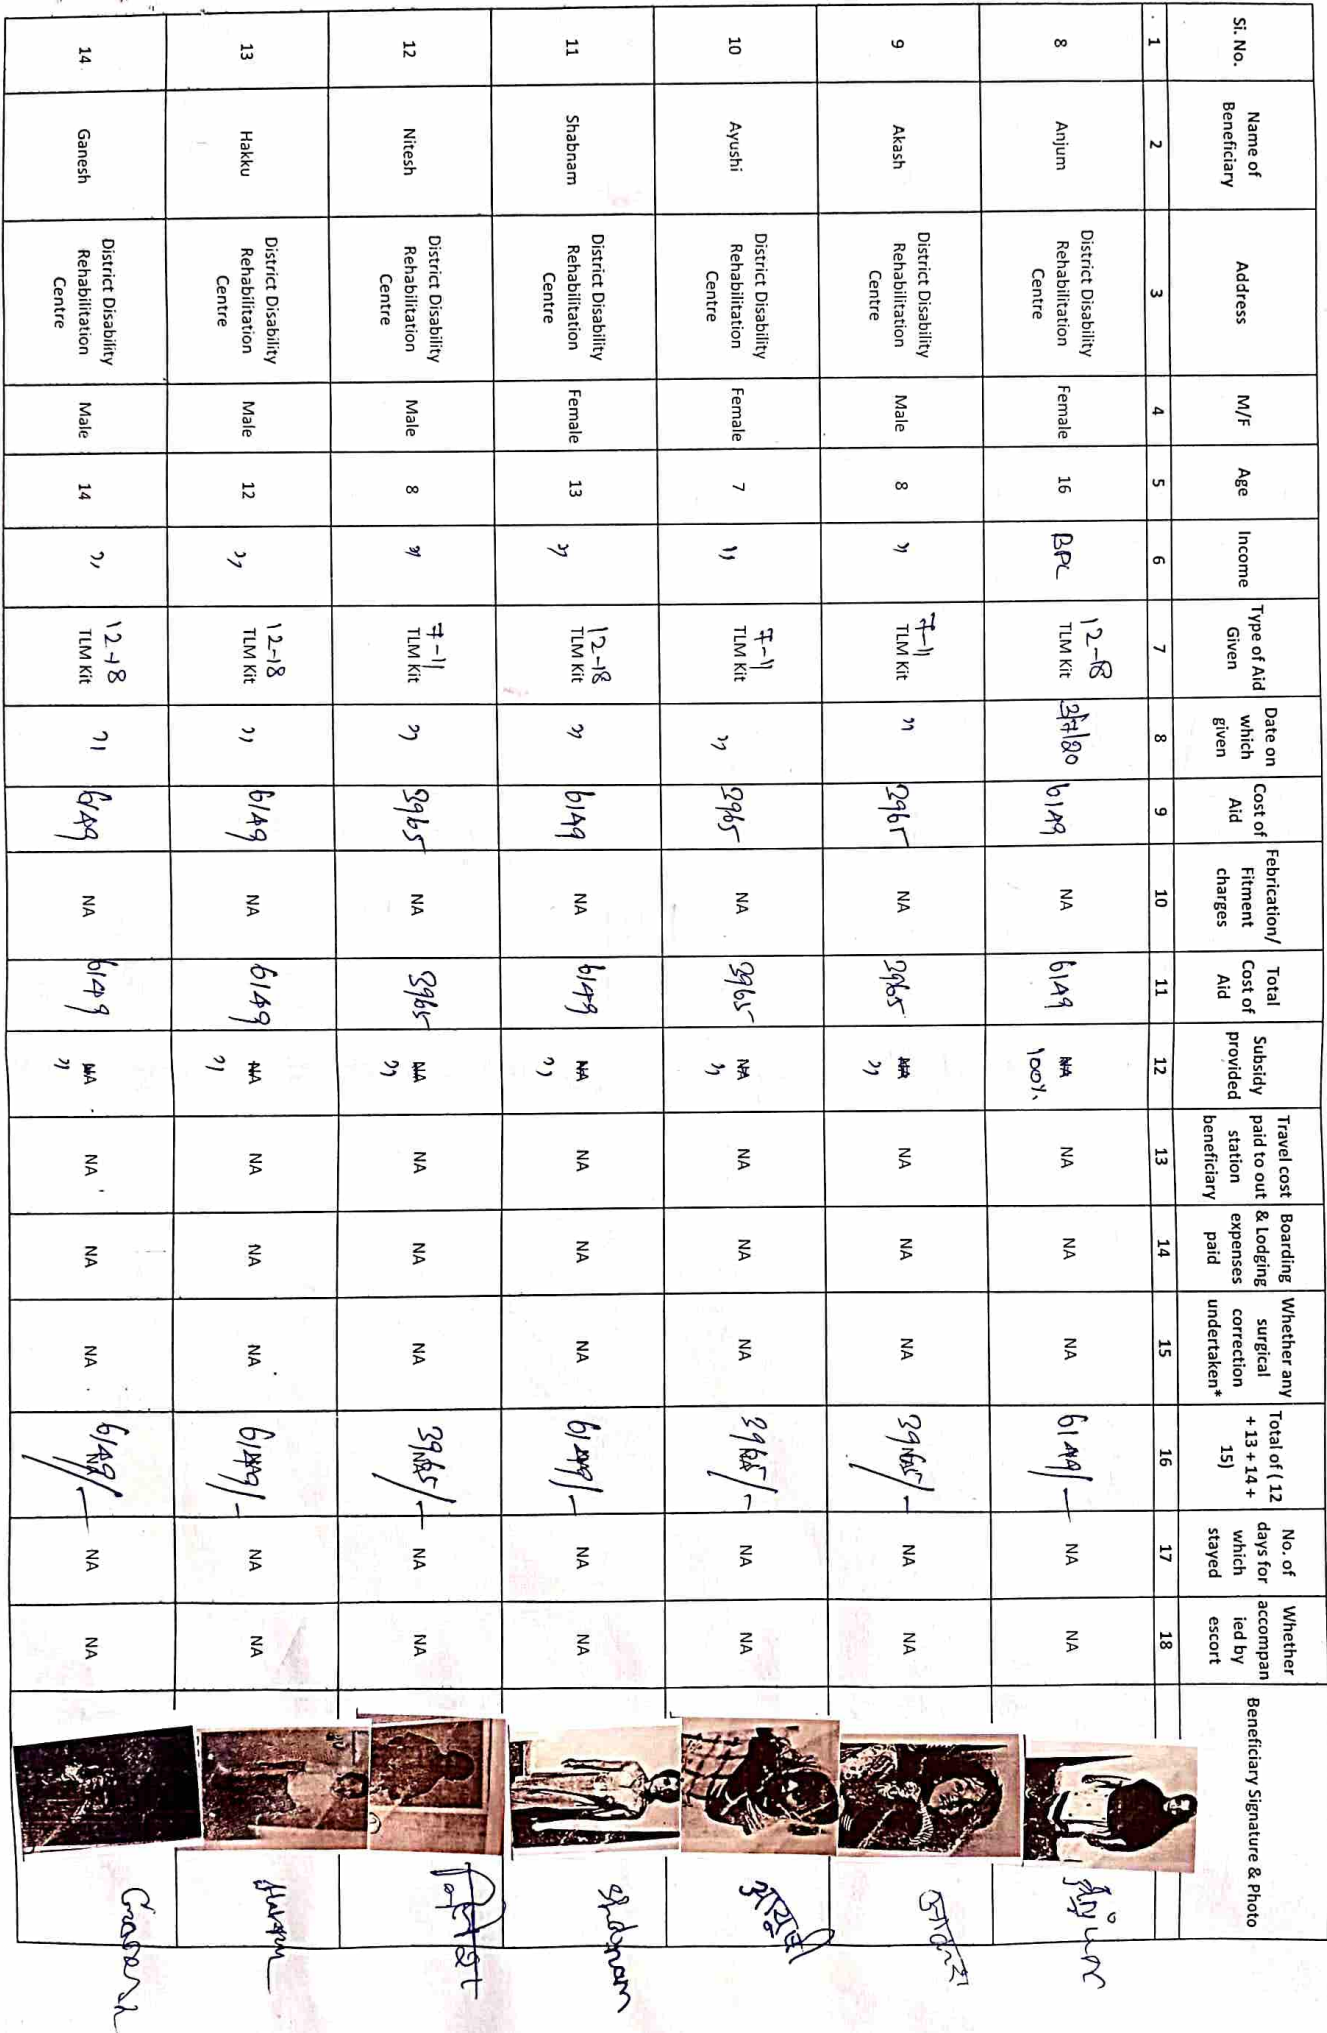 Si. No. | Name of Beneficiary | Address | M/F | Age | Income | Type of Aid Given | Date on which given | Cost of Aid | Febrication/ Fitment charges | Total Cost of Aid | Subsidy provided | Travel cost paid to out station beneficiary | Boarding & Lodging expenses paid | Whether any surgical correction undertaken* | Total of ( 12 + 13 + 14 + 15) | No. of days for which stayed | Whether accompan ied by escort | Beneficiary Signature & Photo
1 | 2 | 3 | 4 | 5 | 6 | 7 | 8 | 9 | 10 | 11 | 12 | 13 | 14 | 15 | 16 | 17 | 18
8 | Anjum | District Disability Rehabilitation Centre | Female | 16 | BPL | 12-18 TLM Kit | 3/7/20 | 6149 | NA | 6149 | NA 100% | NA | NA | NA | 6149/- | NA | NA
9 | Akash | District Disability Rehabilitation Centre | Male | 8 | " | 7-11 TLM Kit | " | 3965 | NA | 3965 | NA " | NA | NA | NA | 3965/- | NA | NA
10 | Ayushi | District Disability Rehabilitation Centre | Female | 7 | " | 7-11 TLM Kit | " | 3965 | NA | 3965 | NA " | NA | NA | NA | 3965/- | NA | NA | आयुषी
11 | Shabnam | District Disability Rehabilitation Centre | Female | 13 | " | 12-18 TLM Kit | " | 6149 | NA | 6149 | NA " | NA | NA | NA | 6149/- | NA | NA | Shabnam
12 | Nitesh | District Disability Rehabilitation Centre | Male | 8 | " | 7-11 TLM Kit | " | 3965 | NA | 3965 | NA " | NA | NA | NA | 3965/- | NA | NA
13 | Hakku | District Disability Rehabilitation Centre | Male | 12 | " | 12-18 TLM Kit | " | 6149 | NA | 6149 | NA " | NA | NA | NA | 6149/- | NA | NA
14 | Ganesh | District Disability Rehabilitation Centre | Male | 14 | " | 12-18 TLM Kit | " | 6149 | NA | 6149 | NA " | NA | NA | NA | 6149/- | NA | NA | Ganesh